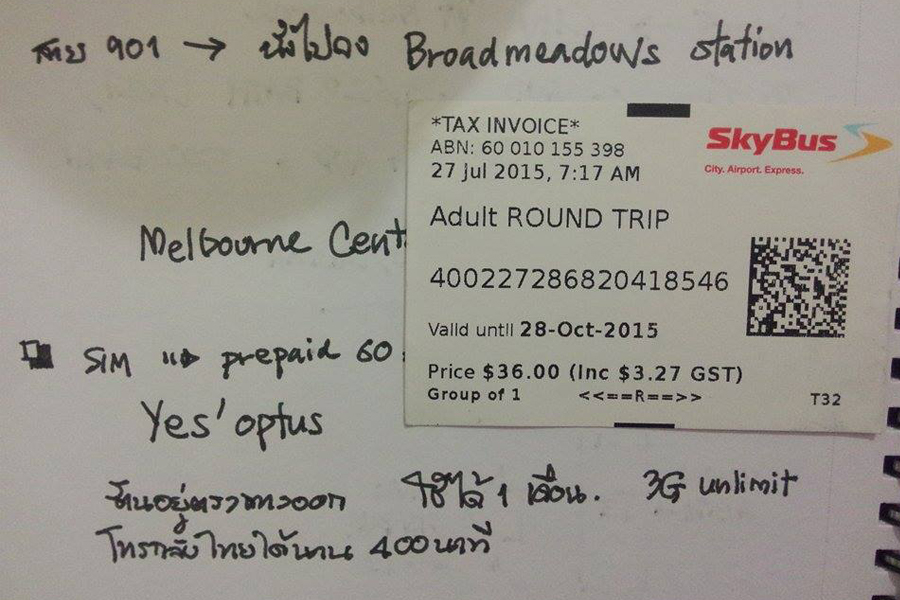 สาย 901 → นั่งไปลง Broadmeadows station
*TAX INVOICE*
ABN: 60 010 155 398
27 Jul 2015, 7:17 AM
SkyBus
City. Airport. Express.
Adult ROUND TRIP
Melbourne Cent
400227286820418546
Valid until 28-Oct-2015
SIM prepaid 60
Price $36.00 (Inc $3.27 GST)
Group of 1 <<==R==>> T32
Yes' optus
ร้านอยู่ตรงทางออก ใช้ได้ 1 เดือน. 3G unlimit
โทรกลับไทยได้นาน 400 นาที